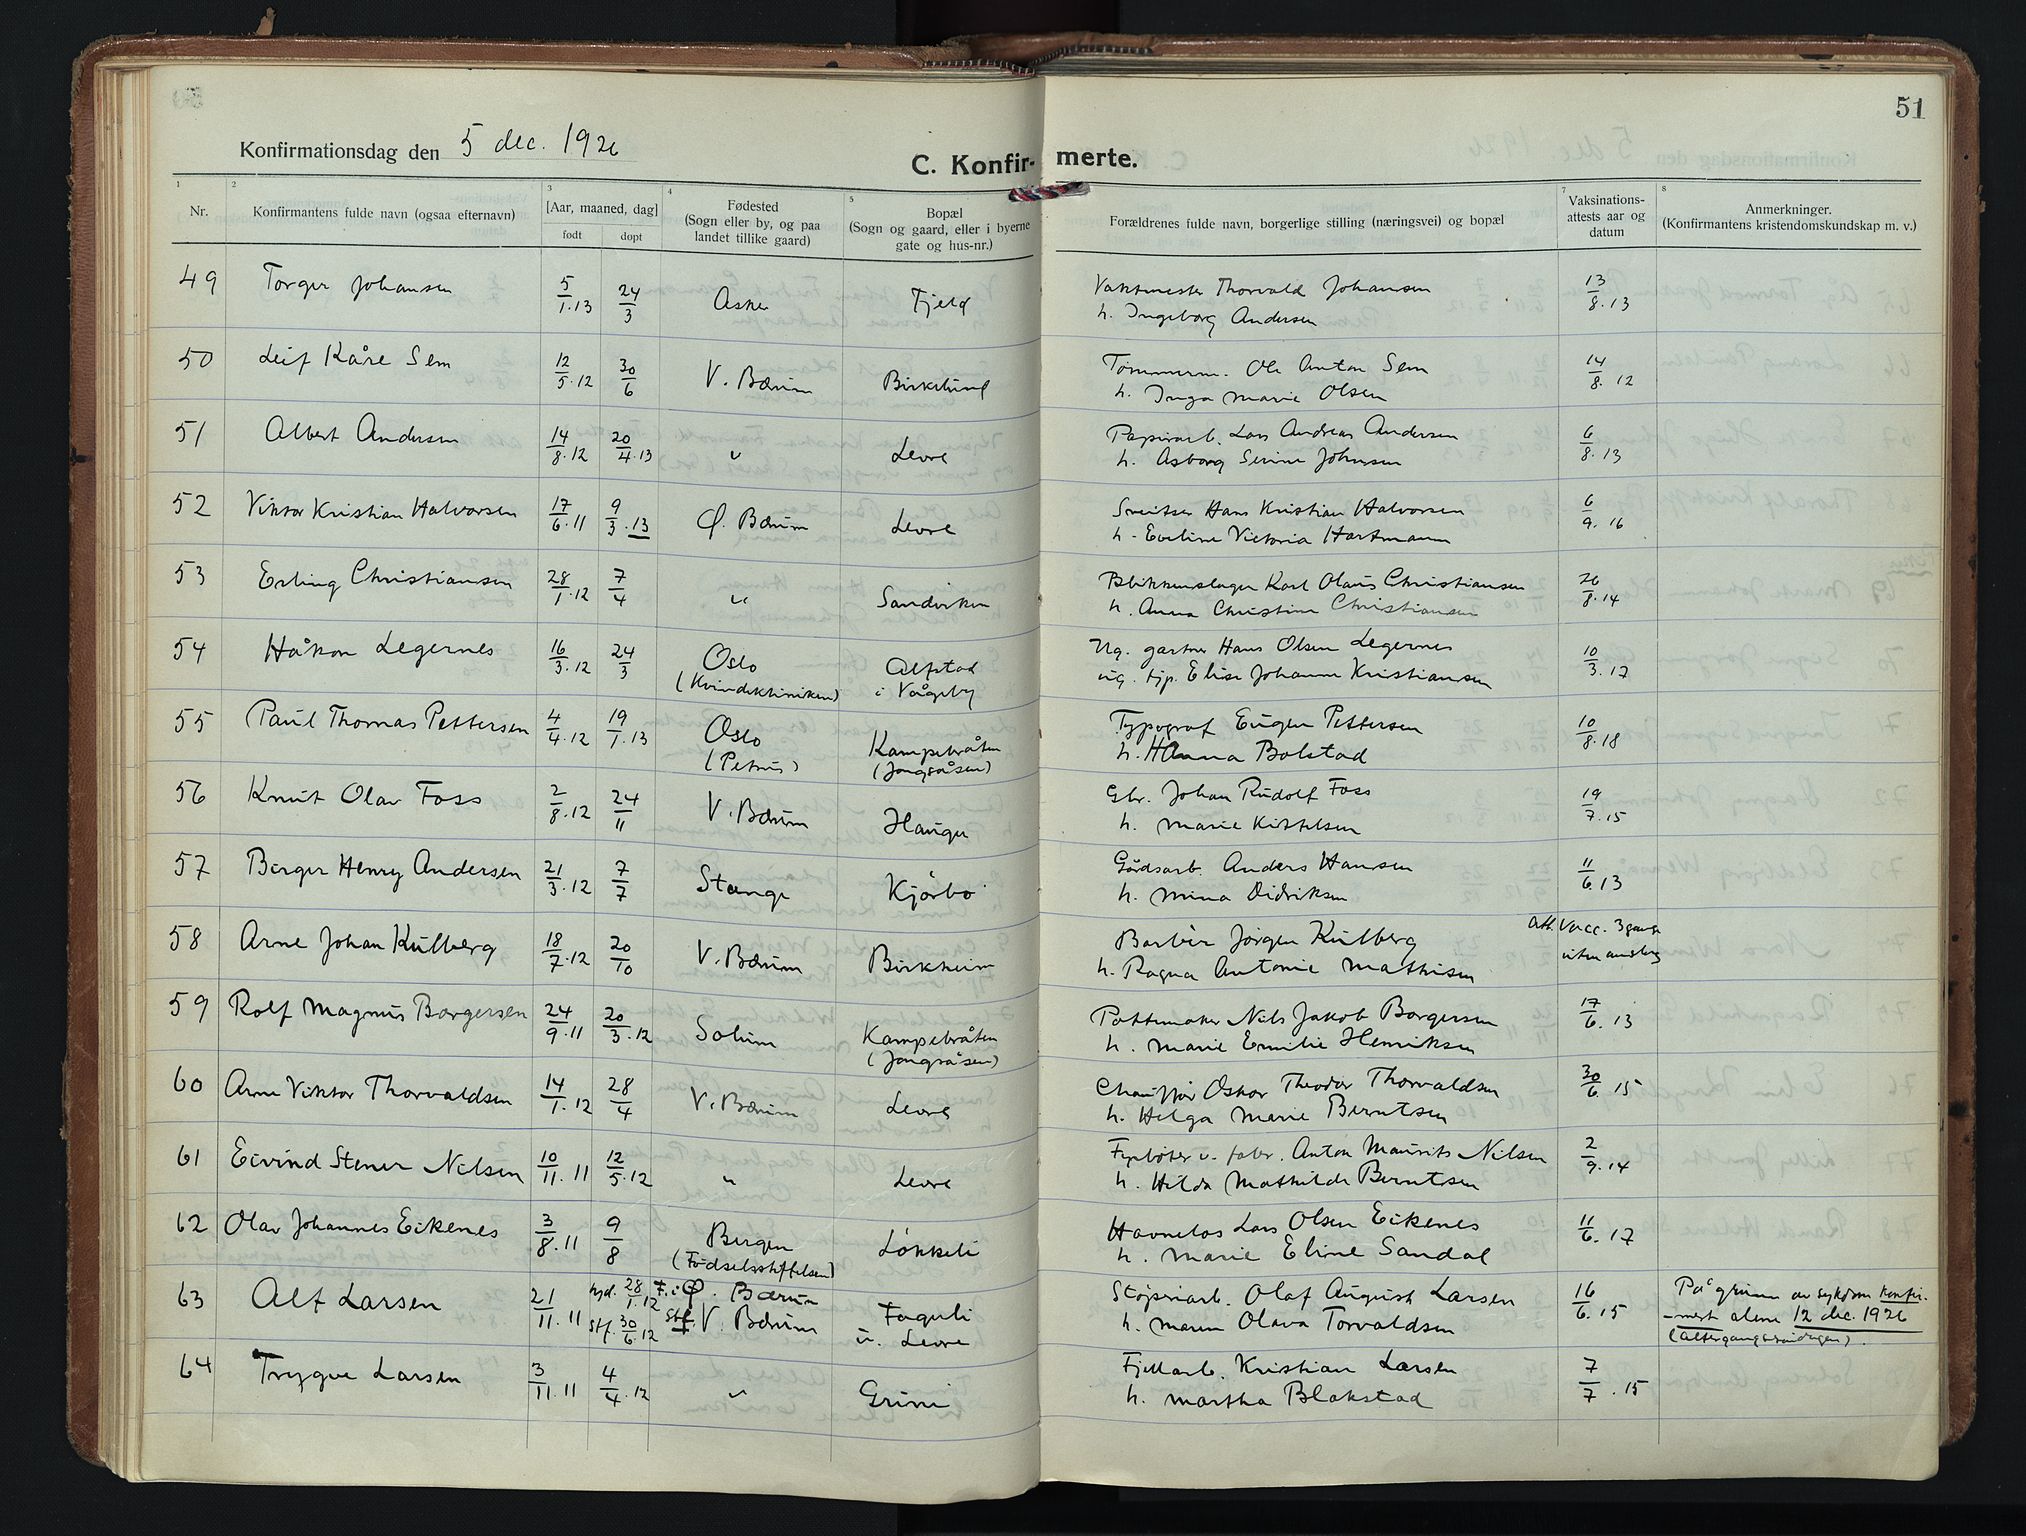 51
Konfirmationsdag den 5 dec. 1926
C. Konfirmerte.
1 2 3 4 5 7 8
Nr.
Konfirmantens fulde navn (ogsaa efternavn)
[Aar, maaned, dag]
født
døpt
Fødested
(Sogn eller by, og paa
landet tillike gaard)
Bopæl
(Sogn og gaard, eller i byerne
gate og hus-nr.)
Forældrenes fulde navn, borgerlige stilling (næringsvei) og bopæl
Vaksinations-
attests aar og
datum
Anmerkninger.
(Konfirmantens kristendomskundskap m. v.)
49 Torger Johansen 5/1.13 24/3 Asker Fjeld Vaktmester Thorvald Johansen 13/8.13
h. Ingeborg Andersen
50 Leif Kåre Sem 12/5.12 30/6 V. Bærum Birkelund Tømmerm. Ole Anton Sem 14/8.12
h. Inga Marie Olsen
51 Albert Andersen 14/8.12 20/4.13 " Levre Papirarb. Lars Andreas Andersen 6/8.13
h. Asborg Serine Johnsen
52 Viktor Kristian Halvorsen 17/6.11 9/3.13 Ø. Bærum Levre Sveitser Hans Kristian Halvorsen 6/9.16
h. Eveline Victoria Hartmann
53 Erling Christiansen 28/1.12 7/4 " Sandviken Blikkenslager Karl Olaus Christiansen 26/8.14
h. Anna Christine Christiansen
54 Håkon Legernes 16/3.12 24/3 Oslo Alfstad Ug. gartner Hans Olsen Legernes 10/3.17
(Kvindeklinikken) i Vågeby ug. tjp. Elise Johanne Kristiansen
55 Paul Thomas Pettersen 4/4.12 19/1.13 Oslo Kampebråten Typograf Eugen Pettersen 10/8.18
(Petrus) (Jongsåsen) h. Hanna Bolstad
56 Knut Olav Foss 2/8.12 24/11 V. Bærum Hauger Gbr. Johan Rudolf Foss 19/7.15
h. Marie Kittelsen
57 Birger Henry Andersen 21/3.12 7/7 Stange Kjørbo Gårdsarb. Anders Hansen 11/6.13
h. Mina Didriksen
58 Arne Johan Kulberg 18/7.12 20/10 V. Bærum Birkheim Barbér Jørgen Kulberg Att. vacc. 3 gange
h. Ragna Antonie Mathisen uten anslag
59 Rolf Magnus Borgersen 24/9.11 20/3.12 Solum Kampebråten Pottemaker Nils Jakob Borgersen 17/6.13
(Jongsåsen) h. Marie Emilie Henriksen
60 Arne Viktor Thorvaldsen 14/1.12 28/4 V. Bærum Levre Chauffør Oskar Theodor Thorvaldsen 30/6.15
h. Helga Marie Berntsen
61 Eivind Stener Nilsen 10/11.11 12/5.12 " Levre Fyrbøter v. fabr. Anton Maurits Nilsen 2/9.14
h. Hilda Mathilde Berntsen
62 Olav Johannes Eikenes 3/8.11 9/8 Bergen Løkkeli Havnelos Lars Olsen Eikenes 11/6.17
(Fødselsstiftelsen) h. Marie Eline Sandal
63 Alf Larsen 21/11.11 hjd. 28/1.12 F. i Ø. Bærum Fagerli Støperiarb. Olaf August Larsen 16/6.15 På grunn av sykdom konfir-
stf. 30/6.12 Stf. V. Bærum u. Levre h. Maren Olava Torvaldsen mert alene 12 dec. 1926
(altergangssøndagen).
64 Trygve Larsen 3/11.11 4/4.12 " Grini Fjellarb. Kristian Larsen 7/7.15
h. Martha Blakstad